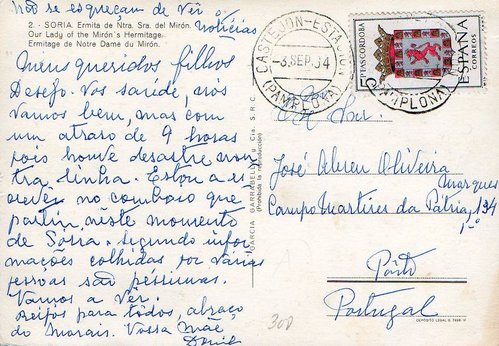 Não se esqueçam de vêr
notícias
2. - SORIA. Ermita de Ntra. Sra. del Mirón.
Our Lady of the Mirón's Hermitage.
Ermitage de Notre Dame du Mirón.
Meus queridos filhos
Desejo. Vos saúde, nós
Vamos bem, mas com
um atraso de 9 horas
pois houve desastre
linha. Estou a es
no comboio que
neste momento
de Soria. Segundo infor
mações colhidas por várias
pessoas são péssimas.
Vamos a Ver.
Beijos para todos, abraço
do Morais. Vossa Mãe
GARCIA GARRABELLA y Cia.
(Prohibida la reproducción)
CASTEJON-ESTACION
-3.SEP.
(PAMPLONA)
(PAMPLONA)
CORDOBA
ESPAÑA
CORREOS
José Abreu Oliveira
Marques
Campo Martires da Pátria, 134
1º
Porto
Portugal
300
DEPÓSITO LEGAL B.